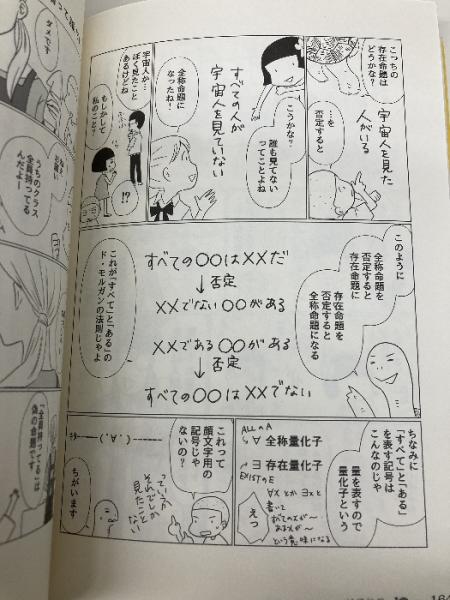 こっちの
存在命題は
どうかな?
宇宙人を見た
人がいる
…を
否定すると
こうかな?
誰も見てない
ってことよね
すべての人が
宇宙人を見ていない
全称命題に
なったね!
宇宙人が…
ぼく見たこと
あるけどね
もしかして
私のこと?
!?
このように
全称命題を
否定すると
存在命題に
存在命題を
否定すると
全称命題になる
すべての〇〇は××だ
↓否定
××でない〇〇がある
××である〇〇がある
↓否定
すべての〇〇は××でない
これが「すべて」と「ある」の
ド・モルガンの法則じゃよ
ちなみに
「すべて」と「ある」
を表す記号は
こんなのじゃ
量を表すので
量化子という
ALLのA
∀ 全称量化子
∃ 存在量化子
EXISTのE
∀xとか∃xと
書いて
すべてのxが〜
あるxが〜
という意味になる
えっ
これって
顔文字用の
記号じゃ
ないの?
キター――(゚∀゚)――――
っていうか
それでしか
見たこと
ない
ちがいます
ダメです
うちのクラス
全員持ってる
んだよー
「全員持ってる」は
偽の命題です
164